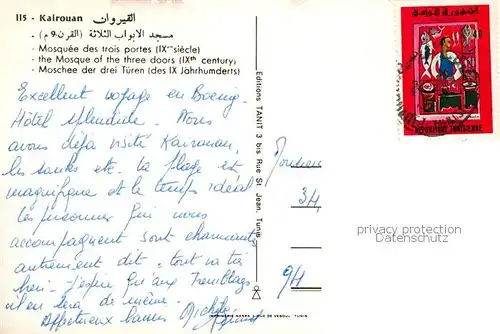 115 - Kairouan القيروان
مسجد الأبواب الثلاثة (القرن 9م) -
- Mosquée des trois portes (IXème siècle)
- the Mosque of the three doors (IXth century)
- Moschee der drei Türen (des IX Jahrhunderts)
Excellent voyage en Boeing.
Hôtel splendide. Nous
avons déjà visité Kairouan,
les souks etc. La plage est
magnifique et le temps idéal
les personnes qui nous
accompagnent sont charmantes
autrement dit tout va très
bien. J'espère qu'aux Tremblays
il en sera de même.
Affectueux baisers
Editions TANIT 3 bis Rue St. Jean, Tunis
Monsieur
34,
94
الجمهورية التونسية
REPUBLIQUE TUNISIENNE
privacy protection
Datenschutz